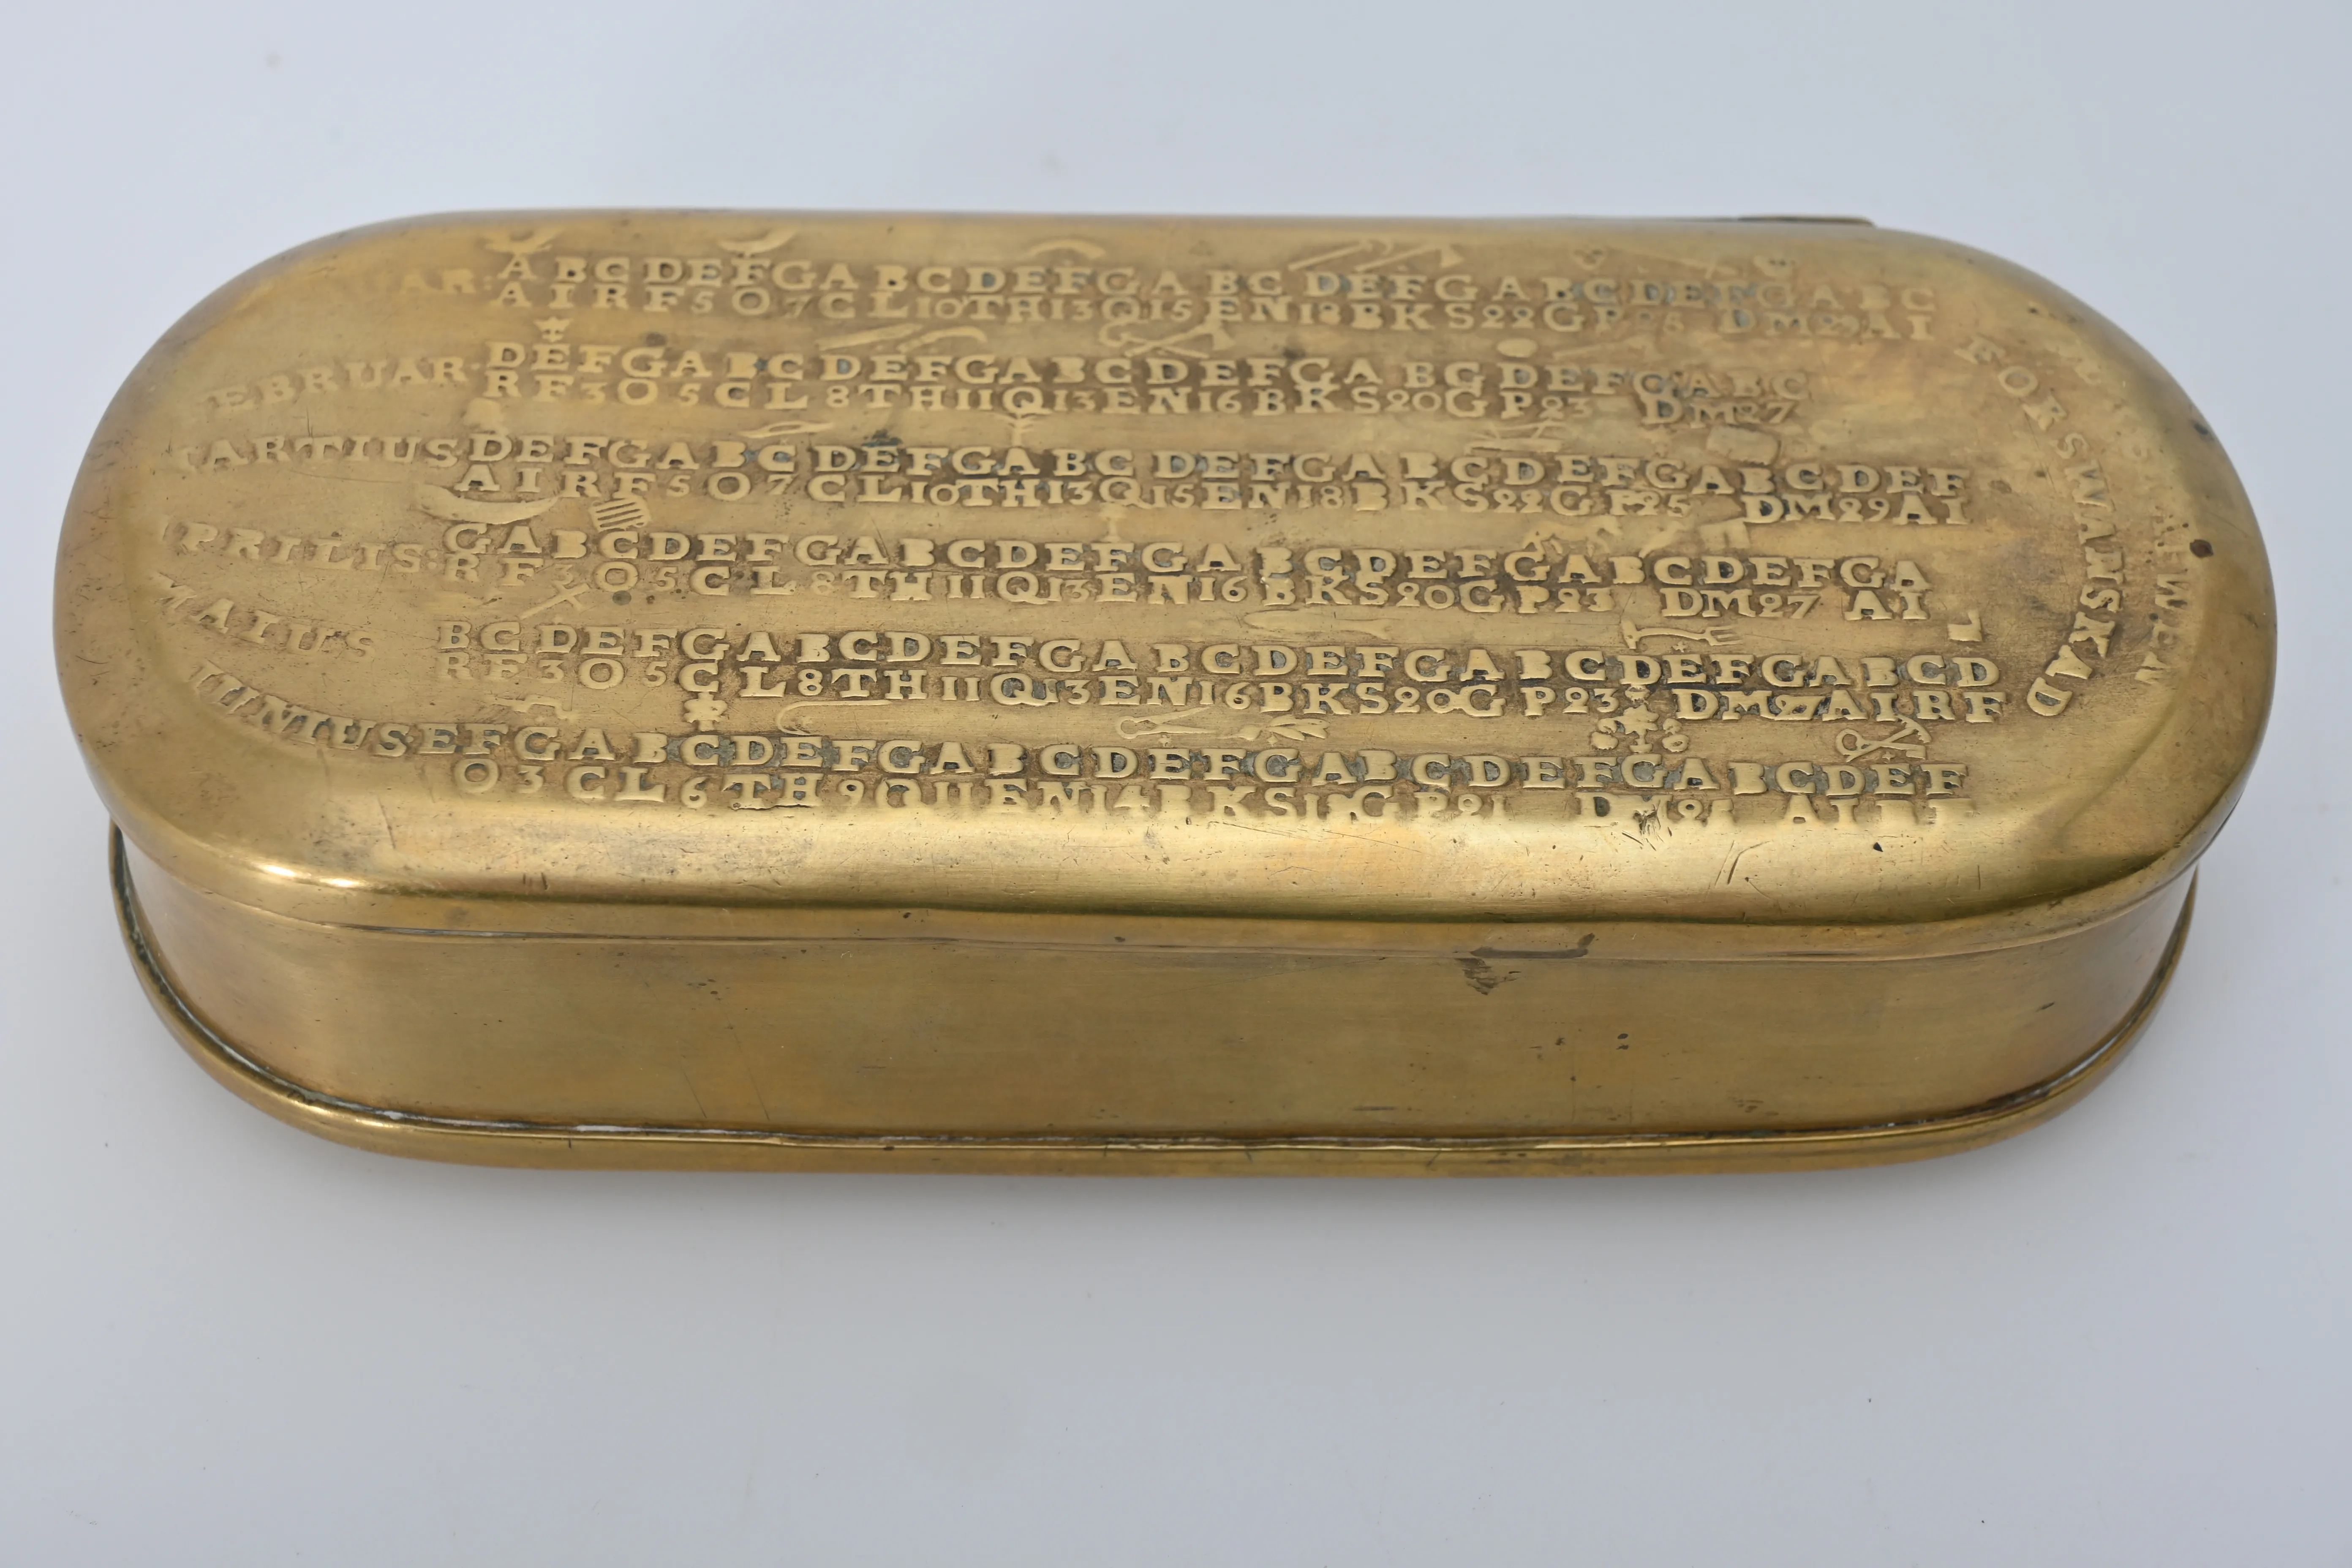 AR: A B C D E F G A B C D E F G A B C D E F G A B C D E F G A B C
A I R F 5 O 7 C L 10 T H 13 Q 15 E N 18 B K S 22 G P 25 D M 29 A I
EBRUAR· D E F G A B C D E F G A B C D E F G A B C D E F G A B C
R F 3 O 5 C L 8 T H 11 Q 13 E N 16 B K S 20 G P 23 D M 27
ARTIUS D E F G A B C D E F G A B C D E F G A B C D E F G A B C D E F
A I R F 5 O 7 C L 10 T H 13 Q 15 E N 18 B K S 22 G P 25 D M 29 A I
PRILIS: G A B C D E F G A B C D E F G A B C D E F G A B C D E F G A
R F 3 O 5 C L 8 T H 11 Q 13 E N 16 B K S 20 G P 23 D M 27 A I
MAIUS B C D E F G A B C D E F G A B C D E F G A B C D E F G A B C D
R F 3 O 5 C L 8 T H 11 Q 13 E N 16 B K S 20 G P 23 D M 27 A I R F
IUNIUS E F G A B C D E F G A B C D E F G A B C D E F G A B C D E F
O 3 C L 6 T H 9 Q 11 E N 14 B K S 18 G P 21 D M
FORSWANSKAD